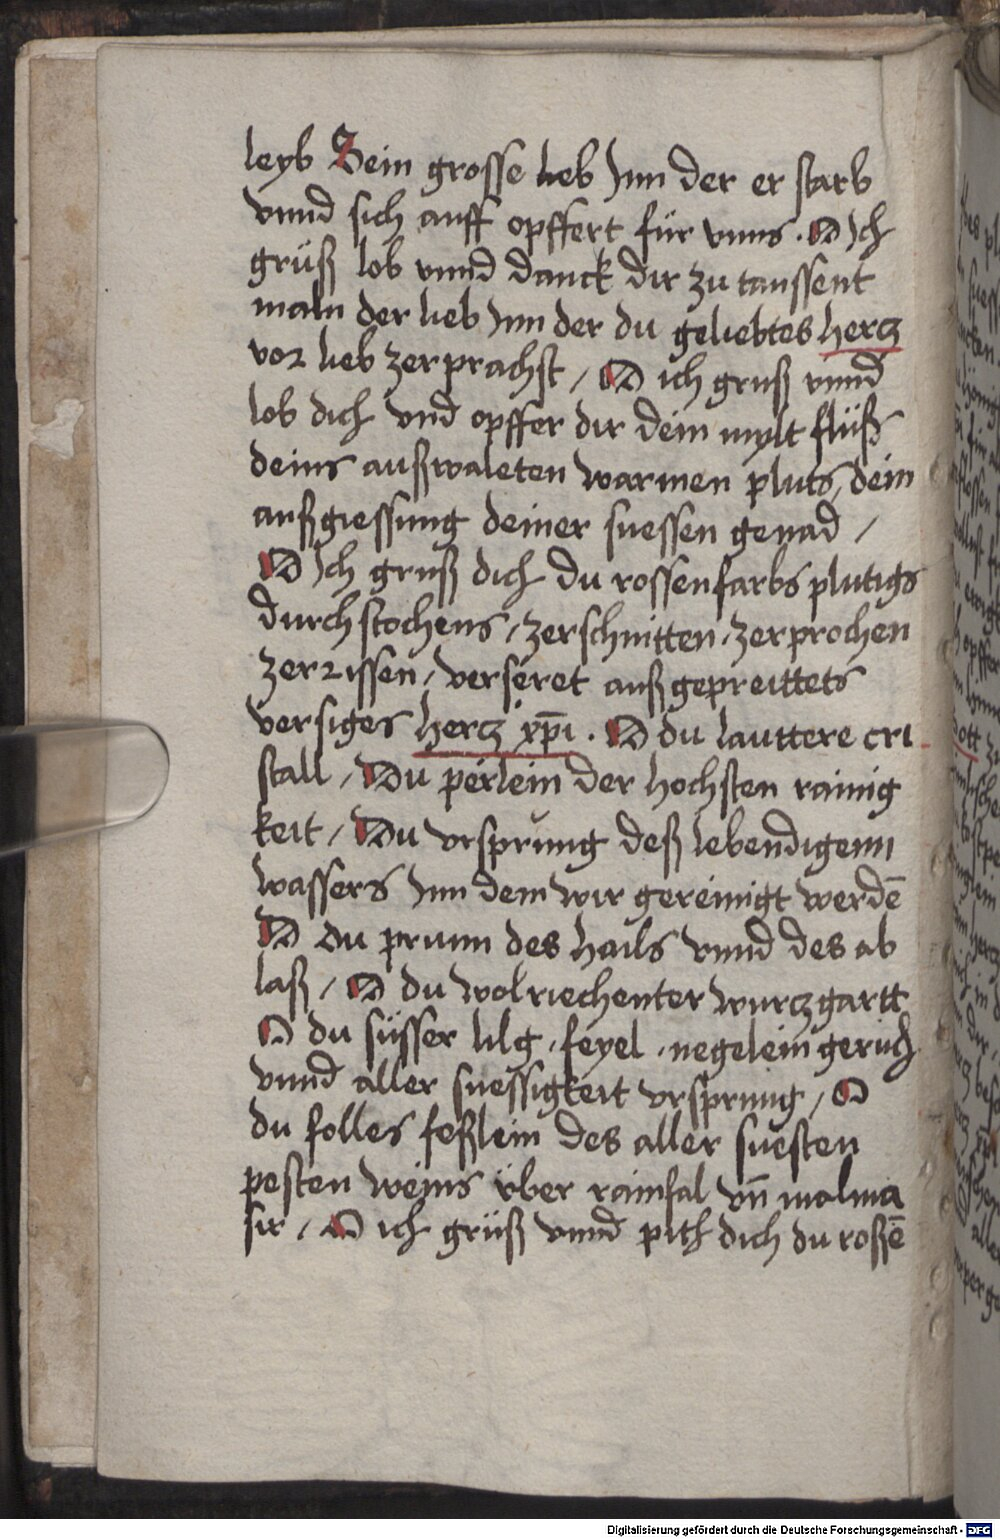 leyb Sein grosse lieb Inn der er starb
vnnd sich auff opffert für vnns. O Ich
grüß lob vnnd danck dir zu taussent
maln der lieb Inn der du geliebtes hercz
vor lieb zerprachst / O ich gruß vnnd
lob dich vnd opffer dir dein mylt flüß
deins außwaleten warmen pluts, dein
außgiessung deiner suessen genad /
O Ich gruß dich du rossenfarbs plutigs
durchstochens, zerschnitten, zerprochen
zerrissen, verseret außgepreittets
versiges hercz xp̄i. O du lauttere cri
stall, Du perlein der hochsten rainig
keit, Du vrsprung deß lebendigenn
wassers Inn dem wir gereinigt werdē
O du prunn des hails vnnd des ab
laß, O du wolriechenter wurczgartt
O du süsser lilg, feyel, negelein geruch
vnnd aller suessigkeit vrsprung, O
du folles feßlein des aller suesten
pesten weins über rainfal vn̄ malma
sir, O ich grüß vnnd pith dich du roßē
Digitalisierung gefördert durch die Deutsche Forschungsgemeinschaft - DFG